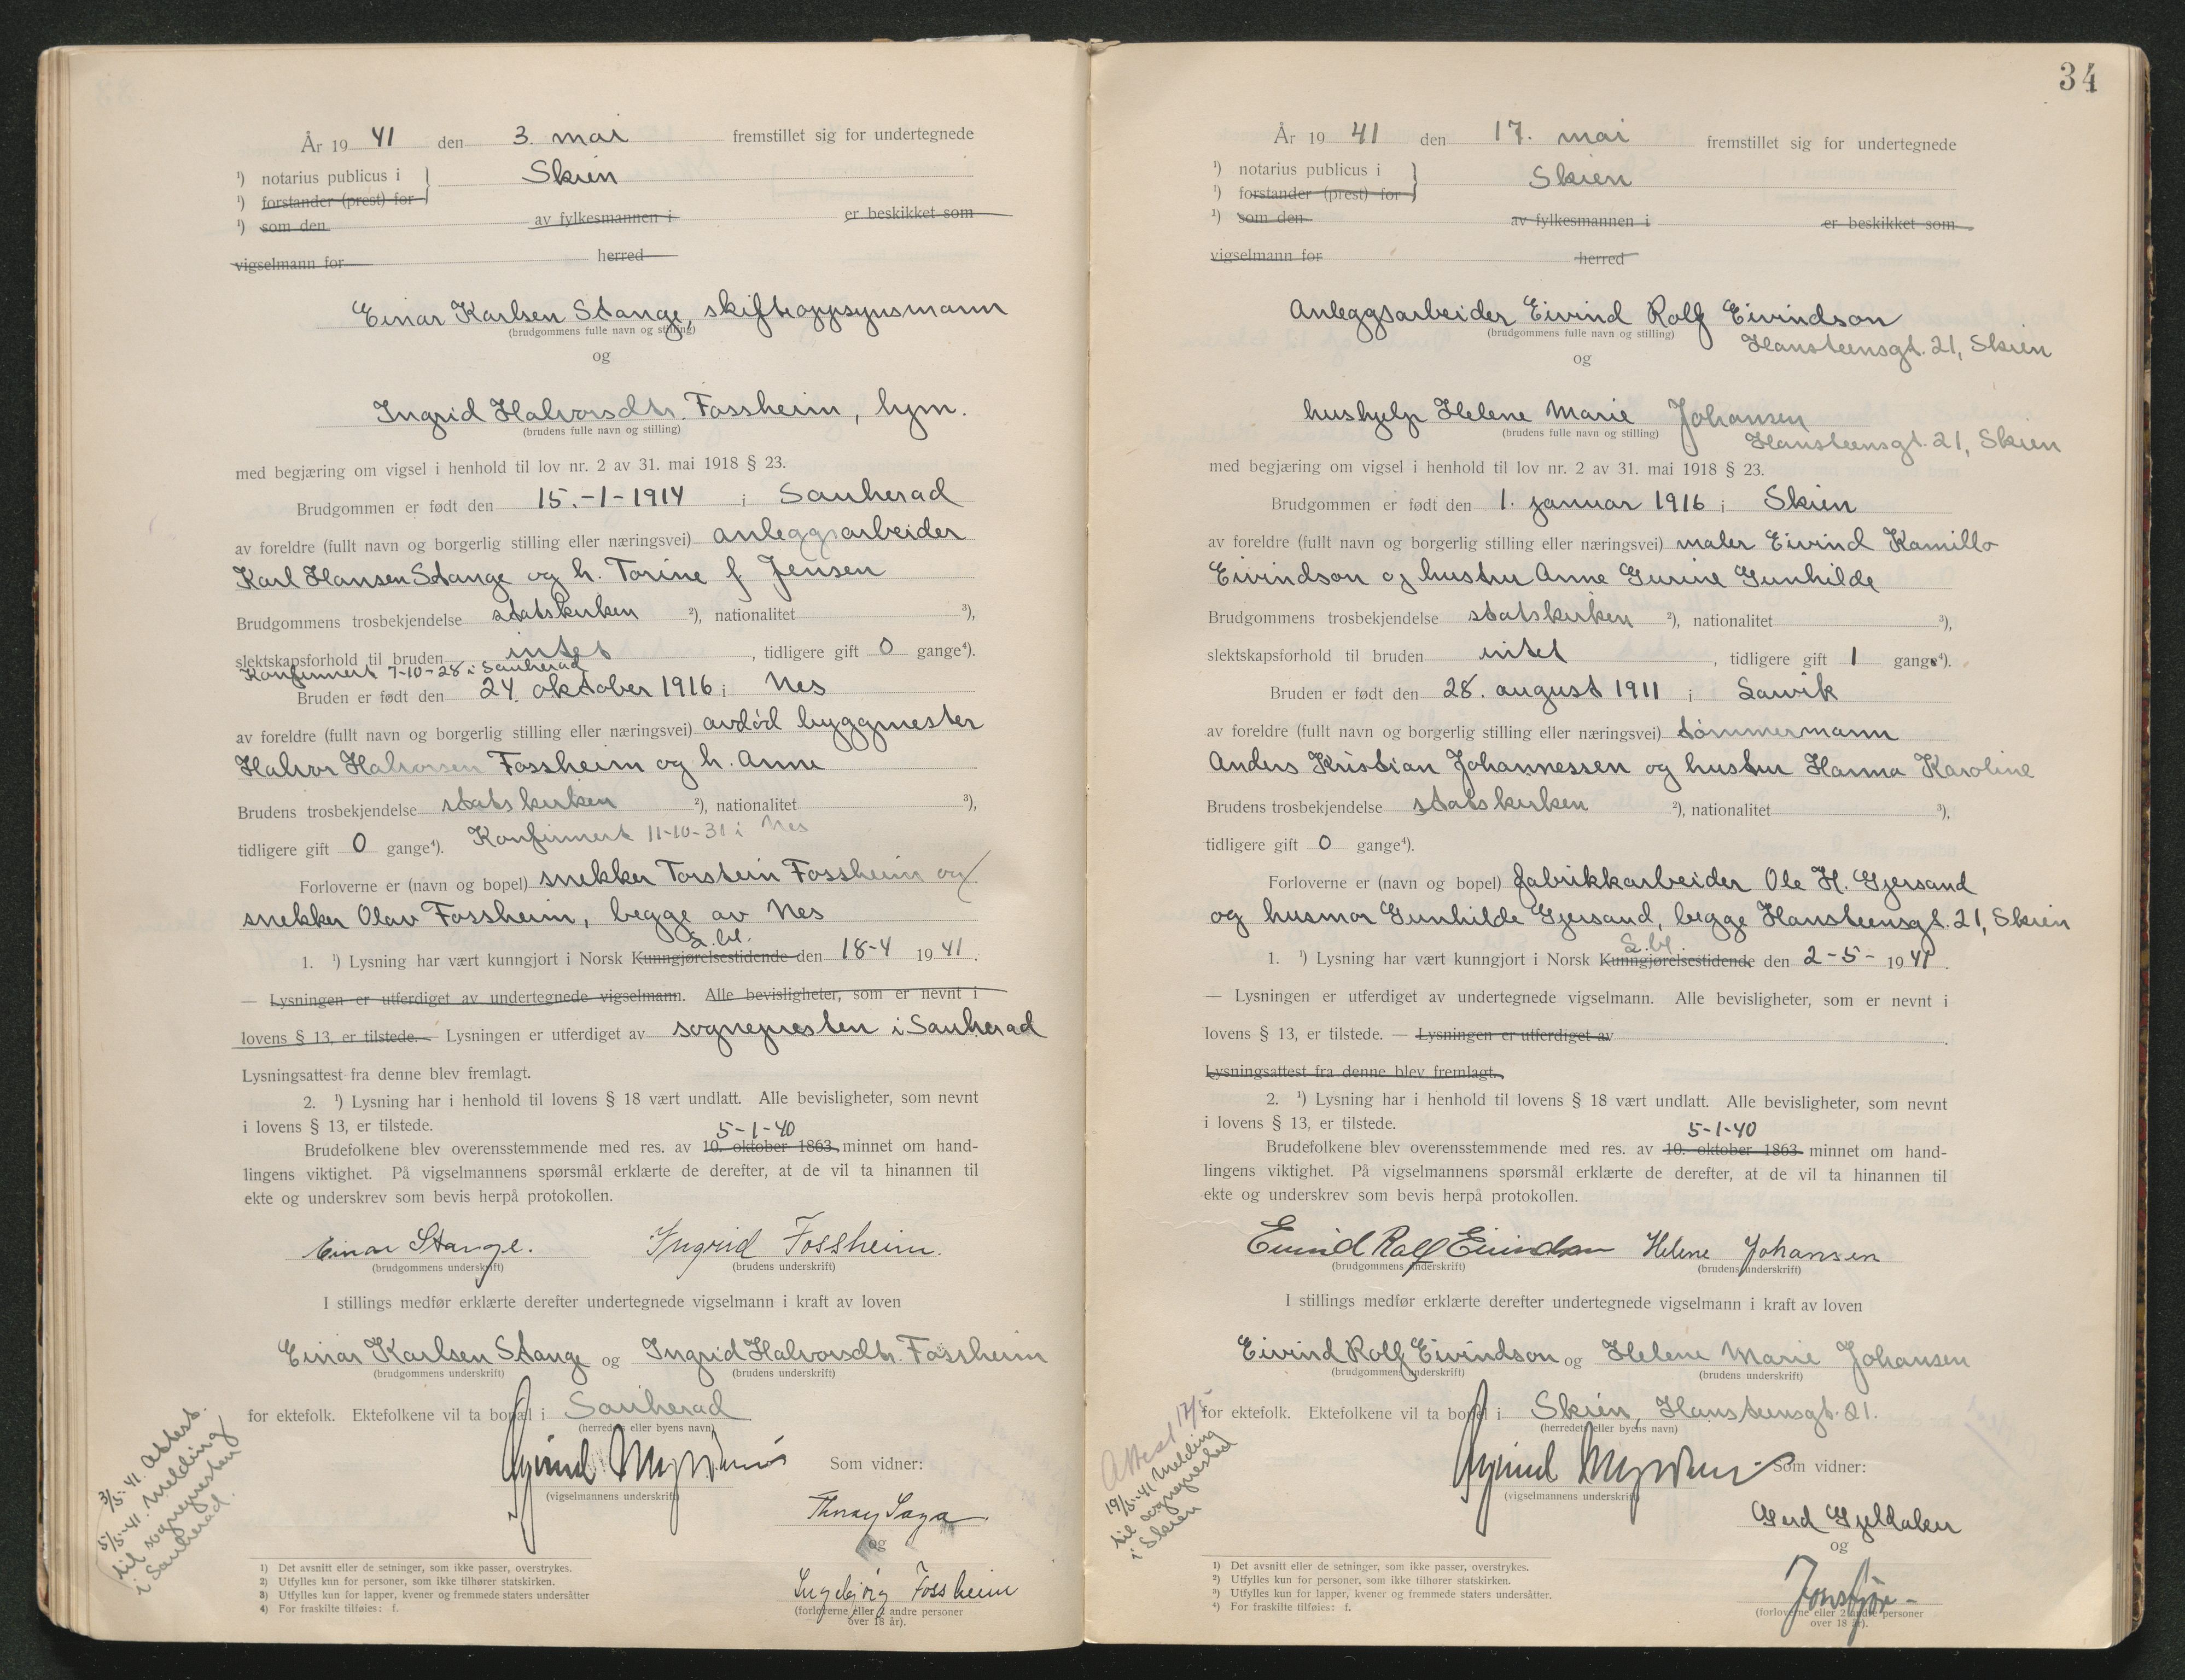 År 19 41 den 3. mai fremstillet sig for undertegnede
¹) notarius publicus i } Skien
¹) forstander (prest) for
¹) som den av fylkesmannen i er beskikket som
vigselmann for herred
Einar Karlsen Stange, skifteoppsynsmann
(brudgommens fulle navn og stilling)
og
Ingrid Halvorsdtr. Fossheim, hjm.
(brudens fulle navn og stilling)
med begjæring om vigsel i henhold til lov nr. 2 av 31. mai 1918 § 23.
Brudgommen er født den 15.-1-1914 i Sauherad
av foreldre (fullt navn og borgerlig stilling eller næringsvei) anleggsarbeider
Karl Hansen Stange og h. Torine f Jensen
Brudgommens trosbekjendelse statskirken ²), nationalitet ³),
slektskapsforhold til bruden intet, tidligere gift 0 gange⁴).
Konfirmert 7-10-28 i Sauherad
Bruden er født den 24. oktober 1916 i Nes
av foreldre (fullt navn og borgerlig stilling eller næringsvei) avdød byggmester
Halvor Halvorsen Fossheim og h. Anne
Brudens trosbekjendelse statskirken ²), nationalitet ³),
tidligere gift 0 gange⁴). Konfirmert 11-10-31 i Nes
Forloverne er (navn og bopel) snekker Torstein Fossheim og
snekker Olav Fossheim, begge av Nes
S. bl.
1. ¹) Lysning har vært kunngjort i Norsk Kunngjørelsestidende den 18-4 1941.
— Lysningen er utferdiget av undertegnede vigselmann. Alle bevisligheter, som er nevnt i
lovens § 13, er tilstede. — Lysningen er utferdiget av sognepresten i Sauherad
Lysningsattest fra denne blev fremlagt.
2. ¹) Lysning har i henhold til lovens § 18 vært undlatt. Alle bevisligheter, som nevnt
i lovens § 13, er tilstede.
5-1-40
Brudefolkene blev overensstemmende med res. av 10. oktober 1863 minnet om hand-
lingens viktighet. På vigselmannens spørsmål erklærte de derefter, at de vil ta hinannen til
ekte og underskrev som bevis herpå protokollen.
Einar Stange. Ingrid Fossheim.
(brudgommens underskrift) (brudens underskrift)
I stillings medfør erklærte derefter undertegnede vigselmann i kraft av loven
Einar Karlsen Stange og Ingrid Halvorsdtr. Fossheim
(brudgommens underskrift) (brudens underskrift)
for ektefolk. Ektefolkene vil ta bopæl i Sauherad
(herredets eller byens navn)
Som vidner:
(vigselmannens underskrift)
og
Ingebjørg Fossheim
(forloverne eller 2 andre personer
over 18 år).
3/5-41. Attest.
5/5-41. Melding
til sognepresten
i Sauherad.
1) Det avsnitt eller de setninger, som ikke passer, overstrykes.
2) Utfylles kun for personer, som ikke tilhører statskirken.
3) Utfylles kun for lapper, kvener og fremmede staters undersåtter
4) For fraskilte tilføies: f.
34
År 19 41 den 17. mai fremstillet sig for undertegnede
¹) notarius publicus i } Skien
¹) forstander (prest) for
¹) som den av fylkesmannen i er beskikket som
vigselmann for herred
Anleggsarbeider Eivind Rolf Eivindson
(brudgommens fulle navn og stilling) Hansteensgt. 21, Skien
og
hushjelp Helene Marie Johansen
(brudens fulle navn og stilling) Hansteensgt. 21, Skien
med begjæring om vigsel i henhold til lov nr. 2 av 31. mai 1918 § 23.
Brudgommen er født den 1. januar 1916 i Skien
av foreldre (fullt navn og borgerlig stilling eller næringsvei) maler Eivind Kamillo
Eivindson og hustru Anne Gurine Gunhilde
Brudgommens trosbekjendelse statskirken ²), nationalitet ³),
slektskapsforhold til bruden intet, tidligere gift 1 gange⁴).
Bruden er født den 28. august 1911 i Larvik
av foreldre (fullt navn og borgerlig stilling eller næringsvei) tømmermann
Anders Kristian Johannessen og hustru Hanna Karoline
Brudens trosbekjendelse statskirken ²), nationalitet ³),
tidligere gift 0 gange⁴).
Forloverne er (navn og bopel) fabrikkarbeider Ole H. Gjersand
og husmor Gunhilde Gjersand, begge Hansteensgt. 21, Skien
S. bl.
1. ¹) Lysning har vært kunngjort i Norsk Kunngjørelsestidende den 2-5- 1941.
— Lysningen er utferdiget av undertegnede vigselmann. Alle bevisligheter, som er nevnt i
lovens § 13, er tilstede. — Lysningen er utferdiget av
Lysningsattest fra denne blev fremlagt.
2. ¹) Lysning har i henhold til lovens § 18 vært undlatt. Alle bevisligheter, som nevnt
i lovens § 13, er tilstede.
5-1-40
Brudefolkene blev overensstemmende med res. av 10. oktober 1863 minnet om hand-
lingens viktighet. På vigselmannens spørsmål erklærte de derefter, at de vil ta hinannen til
ekte og underskrev som bevis herpå protokollen.
Eivind Rolf Eivindson Helene Johansen
(brudgommens underskrift) (brudens underskrift)
I stillings medfør erklærte derefter undertegnede vigselmann i kraft av loven
Eivind Rolf Eivindson og Helene Marie Johansen
(brudgommens underskrift) (brudens underskrift)
for ektefolk. Ektefolkene vil ta bopel i Skien, Hansteensgt. 21.
(herredets eller byens navn)
Som vidner:
(vigselmannens underskrift)
Gerd Gjeldaker
og
(forloverne eller 2 andre personer
over 18 år).
Attest 17/5
19/5-41 Melding
til sognepresten
i Skien
1) Det avsnitt eller de setninger, som ikke passer, overstrykes.
2) Utfylles kun for personer, som ikke tilhører statskirken.
3) Utfylles kun for lapper, kvener og fremmede staters undersåtter.
4) For fraskilte tilføies: f.